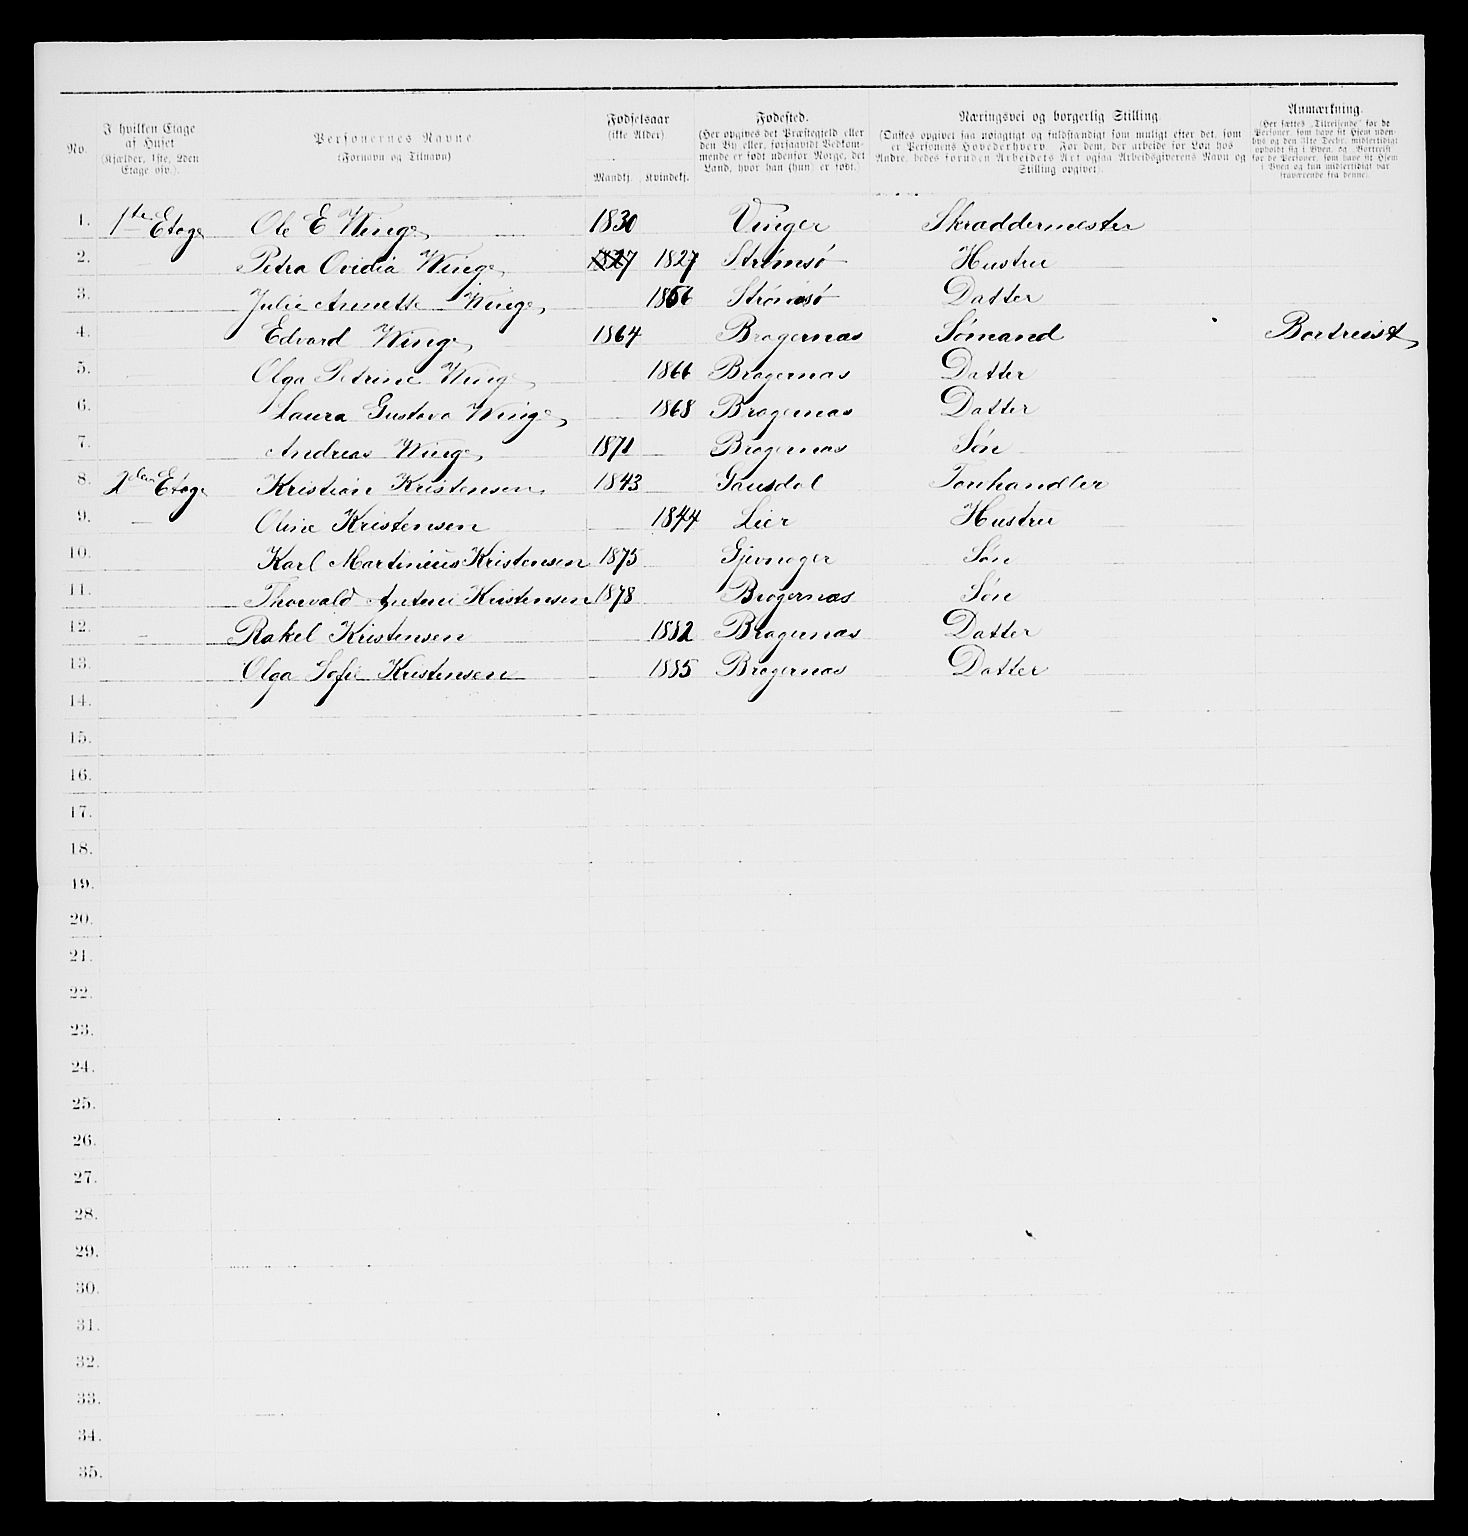 No.
I hvilken Etage af Huset (Kjælder, 1ste, 2den Etage osv.).
Personernes Navne (Fornavn og Tilnavn)
Fødselsaar (ikke Alder) Mandkj. Kvindekj.
Fødested. (Her opgives det Præstegjeld eller den By eller, forsaavidt Vedkommende er født udenfor Norge, det Land, hvor han (hun) er født.)
Næringsvei og borgerlig Stilling. (Ønskes opgivet saa nøiagtigt og fuldstændigt som muligt efter det, som er Personens Hovederhverv. For dem, der arbeide for Løn hos Andre, bedes foruden Arbeidets Art ogsaa Arbeidsgiverens Navn og Stilling opgivet).
Anmærkning. (Her sættes „Tilreisende“ for de Personer, som have sit Hjem udenbys og den 31te Decbr. midlertidigt opholdt sig i Byen, og „Bortreist“ for de Personer, som have sit Hjem i Byen og kun midlertidigt var fraværende fra denne).
1. 1ste Etage Ole E Winge 1830 Vinger Skræddermester
2. — Petra Ovidia Winge 1827 1827 Strømsø Hustru
3. Julie Annette Winge 1856 Strømsø Datter
4. Edvard Winge 1864 Bragernæs Sømand Bortreist
5. — Olga Petrine Winge 1866 Bragernæs Datter
6. Laura Gustava Winge 1868 Bragernæs Datter
7. Andreas Winge 1871 Bragernæs Søn
8. 2den Etage Kristian Kristensen 1843 Gausdal Torvhandler
9. — Oline Kristensen 1844 Lier Hustru
10. Karl Martinius Kristensen 1875 Søn
11. Thorvald Kristensen 1878 Bragernæs Søn
12. — Rakel Kristensen 1882 Bragernæs Datter
13. Olga Sofie Kristensen 1885 Bragernæs Datter
14.
15.
16.
17.
18.
19.
20.
21.
22.
23.
24.
25.
26.
27.
28.
29.
30.
31.
32.
33.
34.
35.